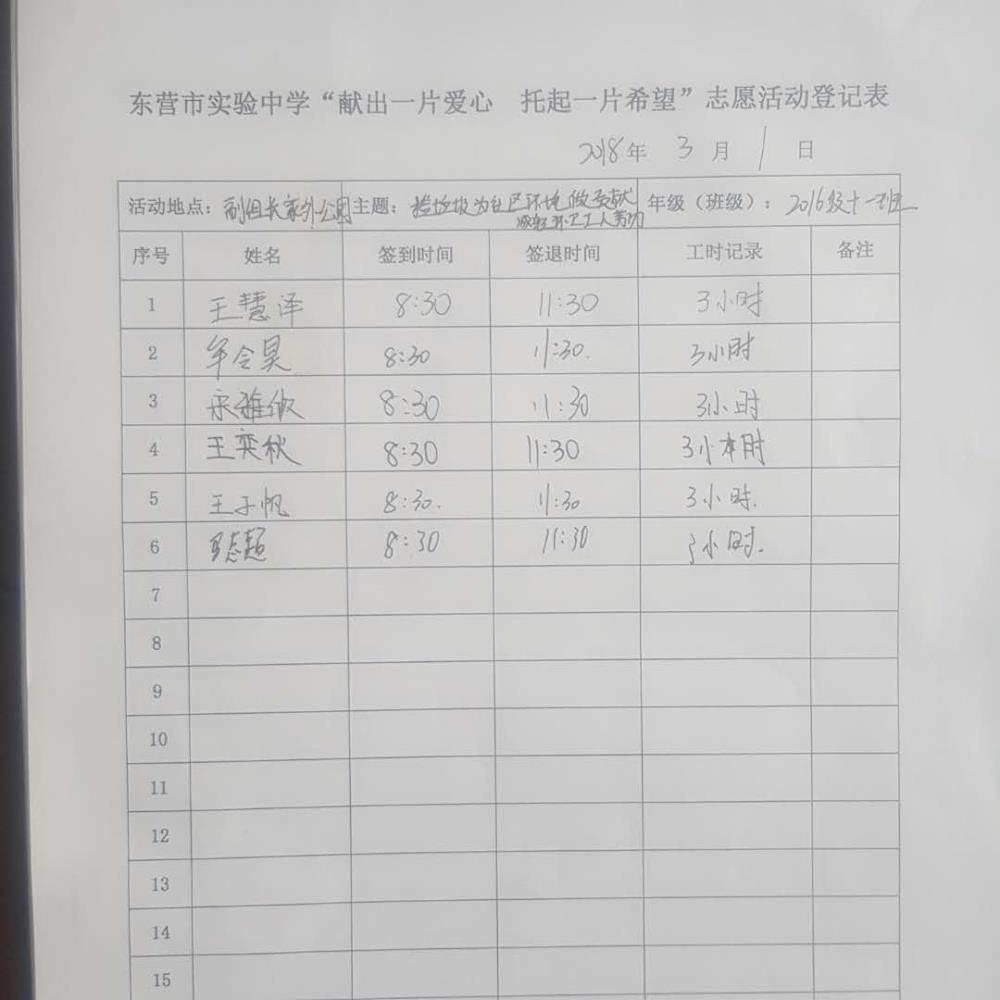 东营市实验中学“献出一片爱心 托起一片希望”志愿活动登记表
2018年 3 月 1 日
活动地点：副组长家外公园 主题：捡垃圾为社区环境做贡献 年级（班级）：2016级十一班
减轻环卫工人劳动
序号 姓名 签到时间 签退时间 工时记录 备注
1 王慧泽 8:30 11:30 3小时
2 牟令昊 8:30 11:30. 3小时
3 宋雅 8:30 11:30 3小时
4 王奕秋 8:30 11:30 3小本时
5 王子帆 8:30. 11:30 3小时.
6 志超 8:30 11:30 3小时.
7
8
9
10
11
12
13
14
15